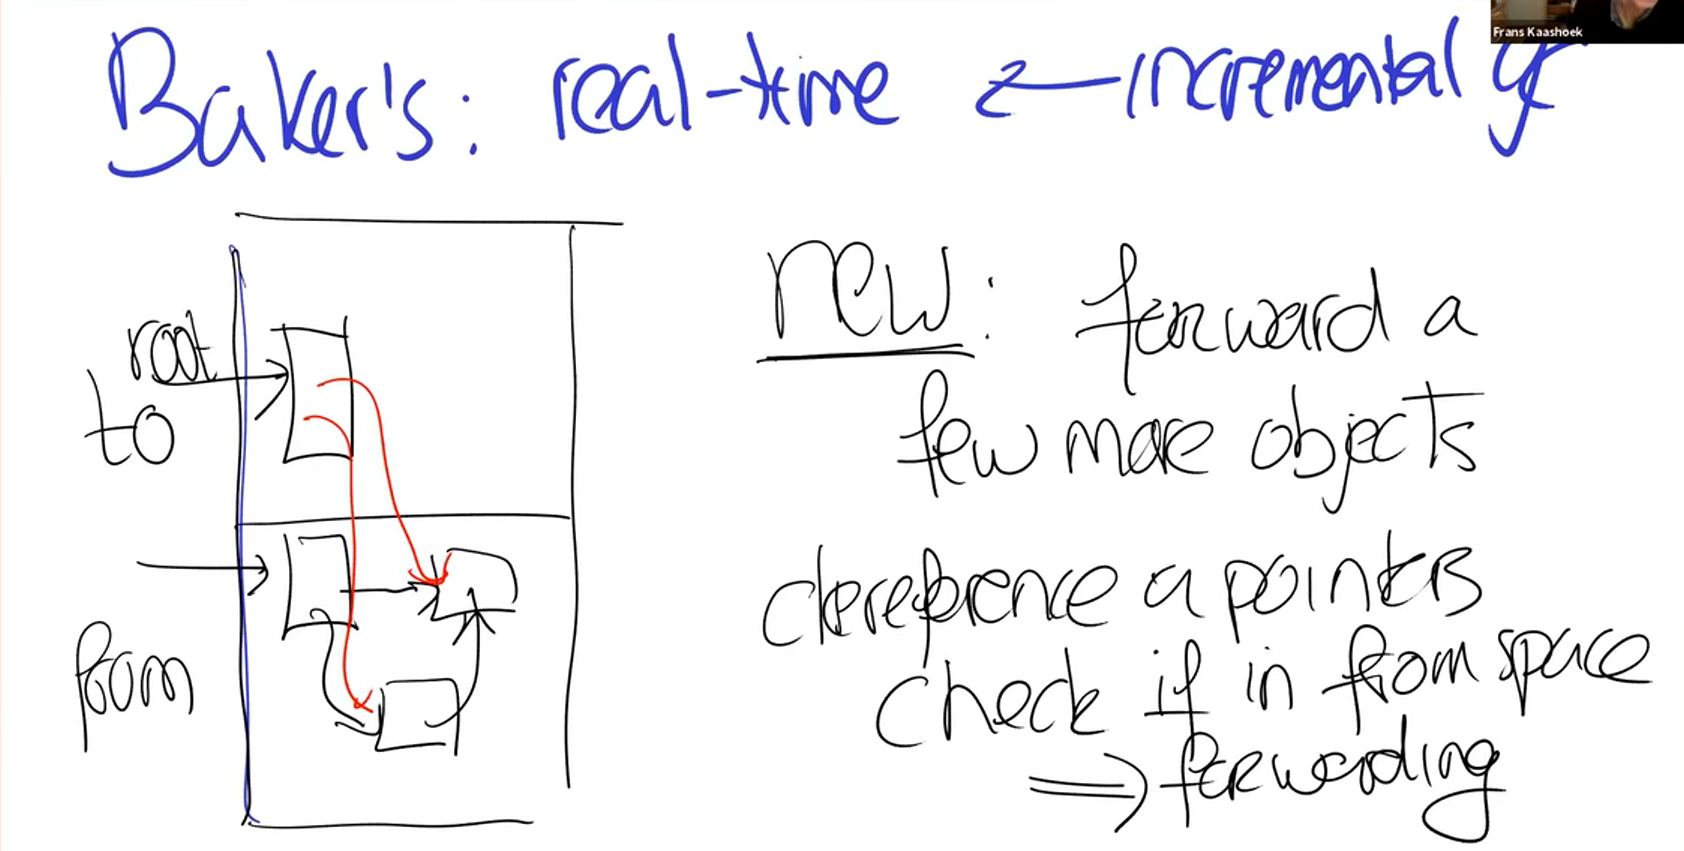 Frans Kaashoek
Baker's: real-time ← incremental gc
root
to
from
new: forward a
few more objects
dereference a pointers
check if in from space
⇒ forwarding